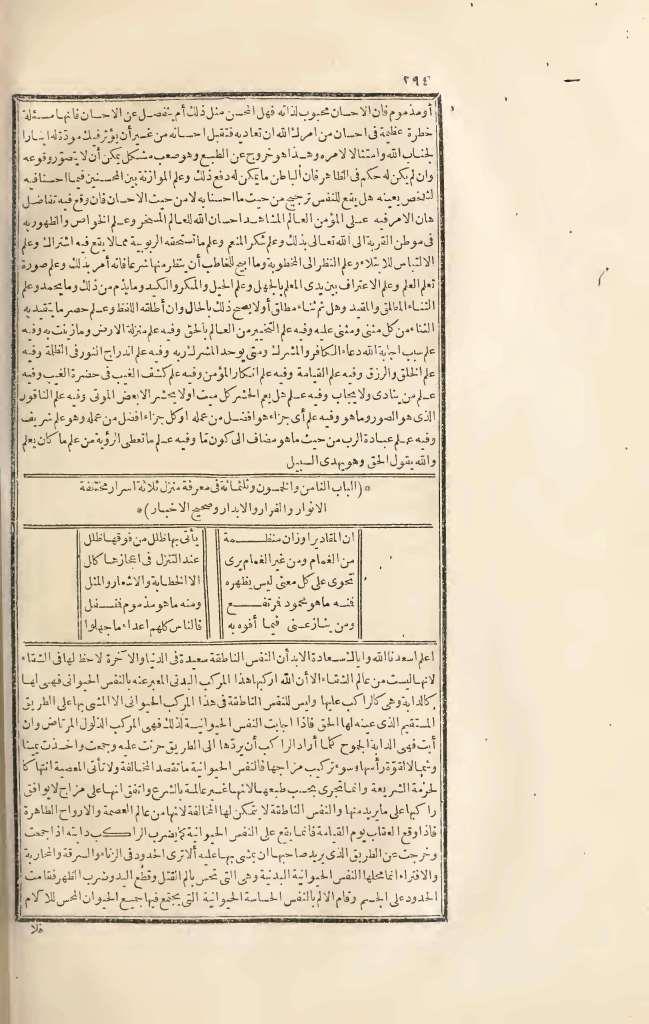 ٢٩٤
أو مذموم فان الاحسان محبوب لذاته فهل المحسن مثل ذلك أم ينفصل عن الاحسان فانها مسئلة
خطرة عظيمة فى احسان من امرك الله ان تعاديه فتقبل احسانه من غير أن يؤثر فيك مودة له ايثارا
لجناب الله وامتثالا لامره وهذا هو خروج عن الطبع وهو صعب مشكل يمكن أن لا يتصور وقوعه
وان لم يكن له حكم فى الظاهر فان الباطن ما يمكن له دفع ذلك وعلم الموازنة بين المحسنين فيما احسنا فيه
لشخص بعينه هل يقع للنفس ترجيح من حيث ما احسنا به لا من حيث الاحسان فان وقع فيه تفاضل
هان الامر فيه على المؤمن العالم المشاهد احسان الله للعالم المسخر وعلم الخواص والظهور به
فى موطن القربة الى الله تعالى بذلك وعلم شكر المنعم وعلم ما تستحقه الربوبية مما لا يقع فيه اشتراك وعلم
الالتباس للابتلاء وعلم النظر الى المخطوبة وما ابيح للخاطب أن ينظر منها شرعا فانه أمر بذلك وعلم صورة
تعلم العلم وعلم الاعتراف بين يدى المعلم بالجهل وعلم الحيل والمكر والكيد وما يذم من ذلك وما يحمد وعلم
الثناء المطلق والمقيد وهل ثم ثناء مطلق أولا يصح ذلك بالحال وان أطلقه اللفظ وعلم حصر ما يتقيد به
الثناء من كل مثنى ومثنى عليه وفيه علم التخيير من العالم بالحق وفيه علم منزلة الارض وما زينت به وفيه
علم سبب اجابة الله دعاء الكافر والمشرك ومتى يوحد المشرك ربه وفيه علم اندراج النور فى الظلمة وفيه
علم الخلق والرزق وفيه علم القيامة وفيه علم انكار المؤمن وفيه علم كشف الغيب فى حضرة الغيب وفيه
علم من ينادى ولا يجاب وفيه علم هل يعم الحشر كل ميت اولا يحشر الا بعض الموتى وفيه علم الناقور
الذى هو الصور وما هو وفيه علم أى جزاء هو افضل من عمله او كل جزاء افضل من عمله وهو علم شريف
وفيه علم عبادة الرب من حيث ما هو مضاف الى كون ما وفيه علم ما تعطى الرؤية من علم ما كان يعلم
والله يقول الحق وهو يهدى السبيل
* (الباب الثامن والخمسون وثلثمائة فى معرفة منزل ثلاثة اسرار مختلفة
الانوار والقرار والابدار وصحيح الاخبار) *
ان المقادير اوزان منظمة يأتى بها ظلل من فوقها ظلل
من الغمام ومن غير الغمام يرى عند التنزل فى اعجازها كال
تحوى على كل معنى ليس يظهره الا الخطابة والاشعار والمثل
فنه ما هو محمود فرتفع ومنه ما هو مذموم فنسفل
ومن ينازعنى فيما أفوه به فالناس كلهم اعداء ما جهلوا
اعلم اسعدنا الله وايا بالسعادة الابد أن النفس الناطقة سعيدة فى الدنيا والآخرة لا حظ لها فى الشقاء
لانها ليست من عالم الشقاء الا أن الله اركبها هذا المركب البدنى المعبر عنه بالنفس الحيوانى فهى لها
كالدابة وهى كالراكب عليها وليس للنفس الناطقة فى هذا المركب الحيوانى الا المشى بها على الطريق
المستقيم الذى عينه لها الحق فاذا اجابت النفس الحيوانية لذلك فهى المركب الذلول المرتاض وان
أبت فهى الدابة الجموح كلما أراد الراكب أن يردها الى الطريق حرنت عليه وجمعت واخذت يمينا
وشمالا لقوة رأسها وسوء تركيب مزاجها فالنفس الحيوانية ما تقصد المخالفة ولا تأتى المعصية انتهاكا
لحرمة الشريعة وانما تجرى بحسب طبعها لانها غير عالمة بالشرع واتفق انها على مزاج لا يوافق
راكبها على ما يريد منها والنفس الناطقة لا يتمكن لها المخالفة لانها من عالم العصمة والارواح الطاهرة
فاذا وقع العقاب يوم القيامة فانما يقع على النفس الحيوانية كما يضرب الراكب دابته اذا جمحت
وخرجت عن الطريق الذى يريد صاحبها ان يمشى بها عليه ألا ترى الحدود فى الزناء والسرقة والمحاربة
والافتراء انما محلها النفس الحيوانية البدنية وهى التى تحس بالم القتل وقطع اليد وضرب الظهر فقامت
الحدود على الجسم وقام الالم بالنفس الحساسة الحيوانية التى يجتمع فيها جميع الحيوان المحس للآلام
فلا